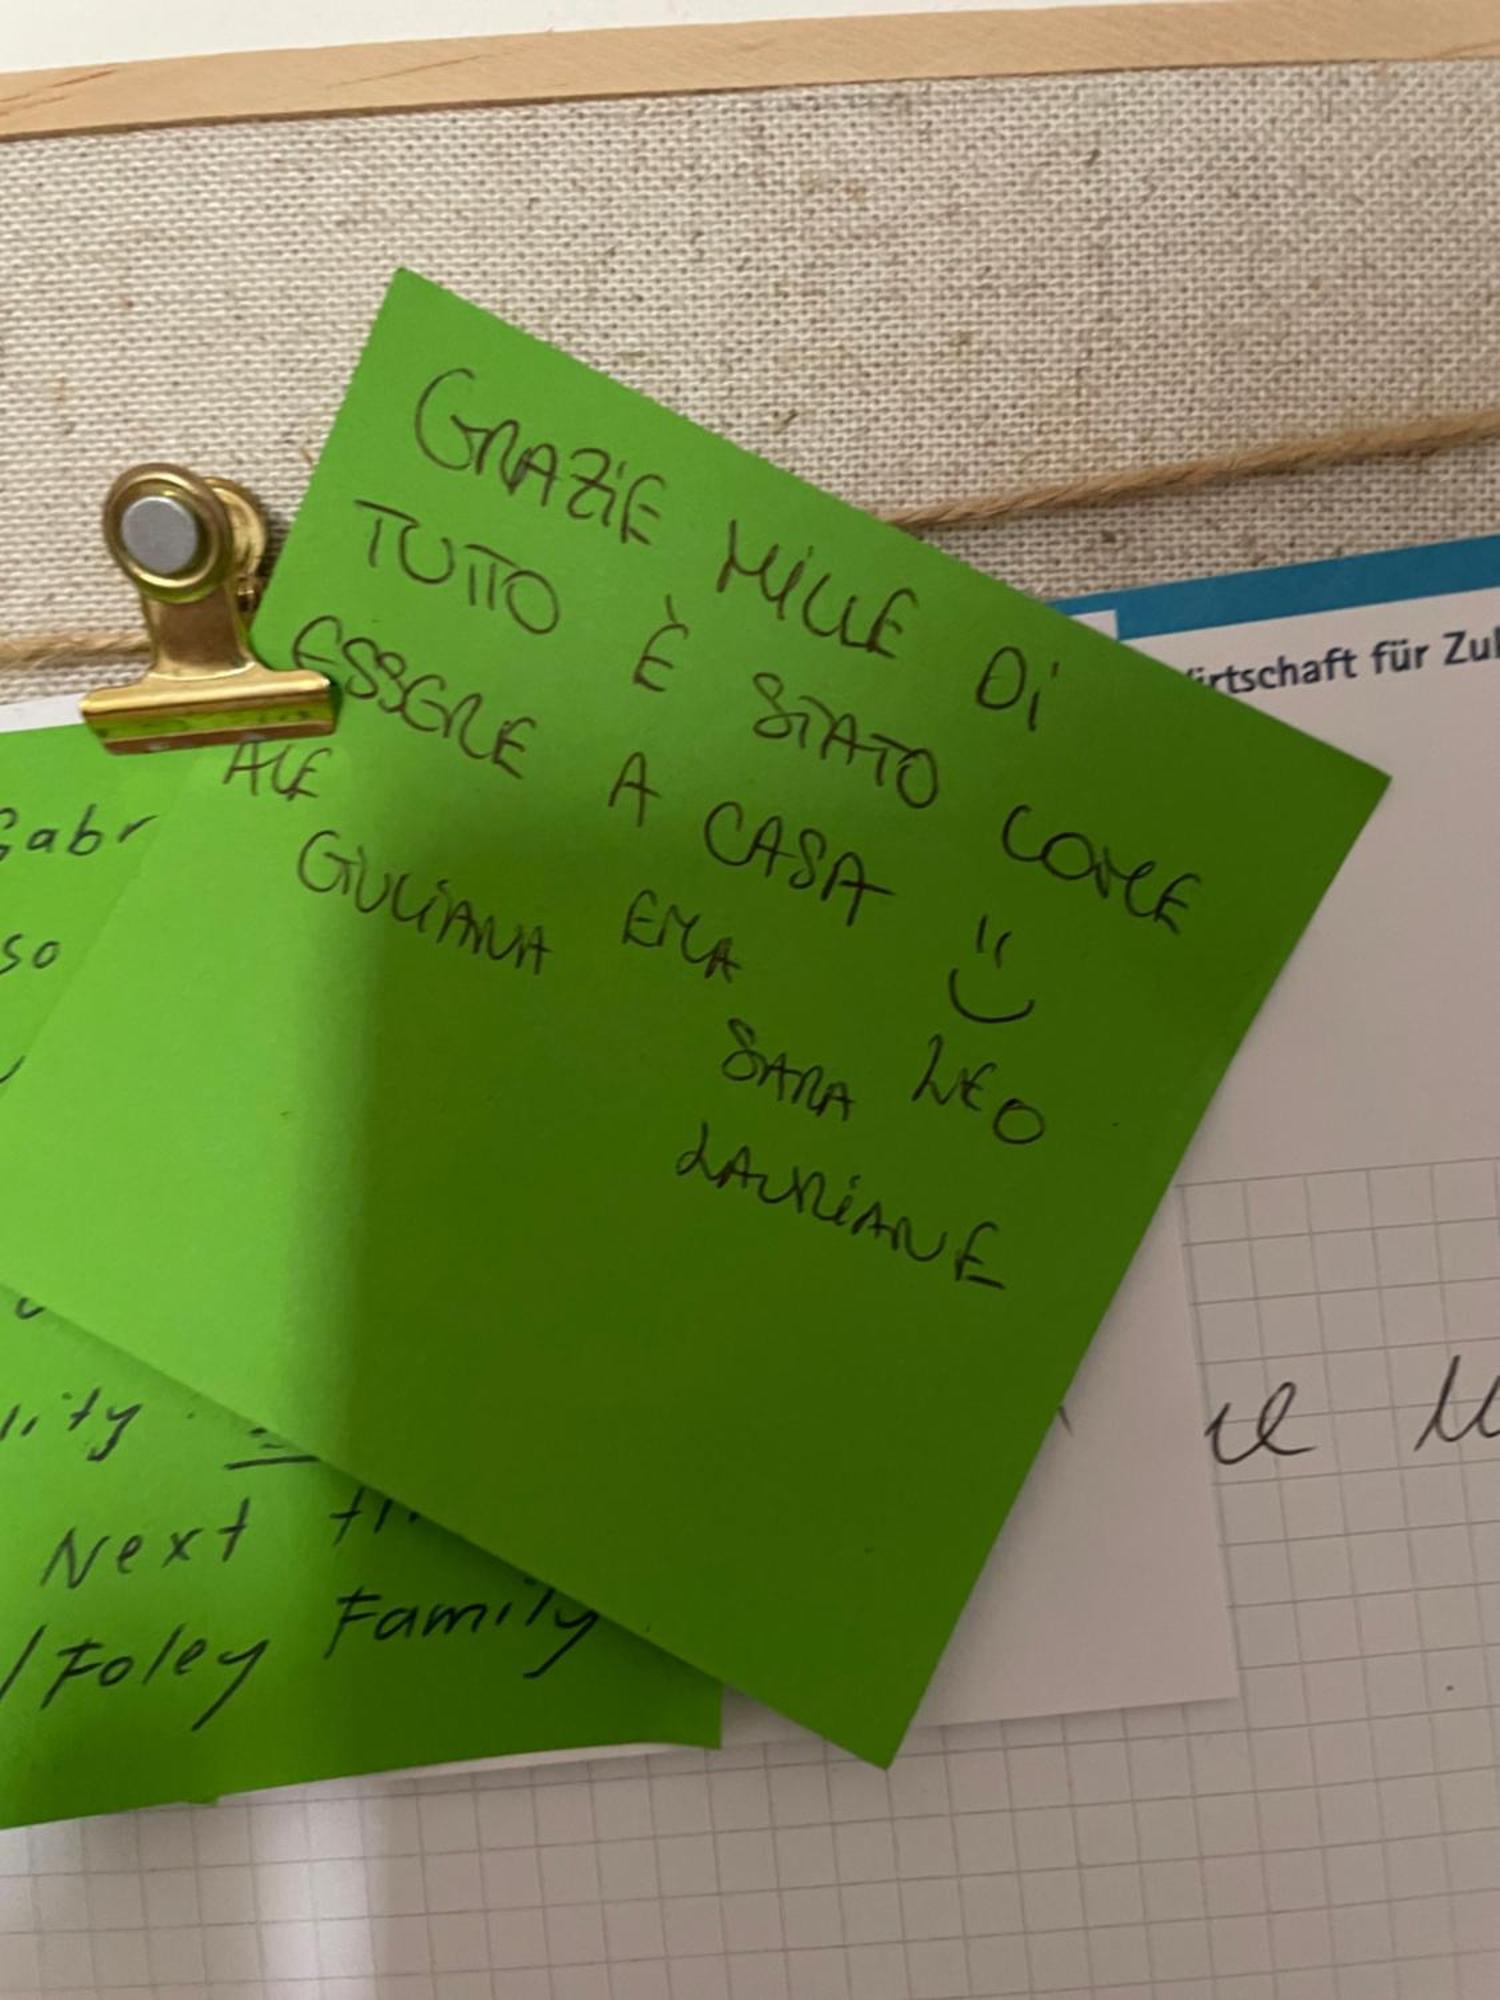 GRAZIE MILLE DI
TUTTO È STATO COME
ESSERE A CASA
ALE
GIULIANA EMA
SARA LEO
LAURIANE
Gabr
so
lity
Next
/Foley Family
für